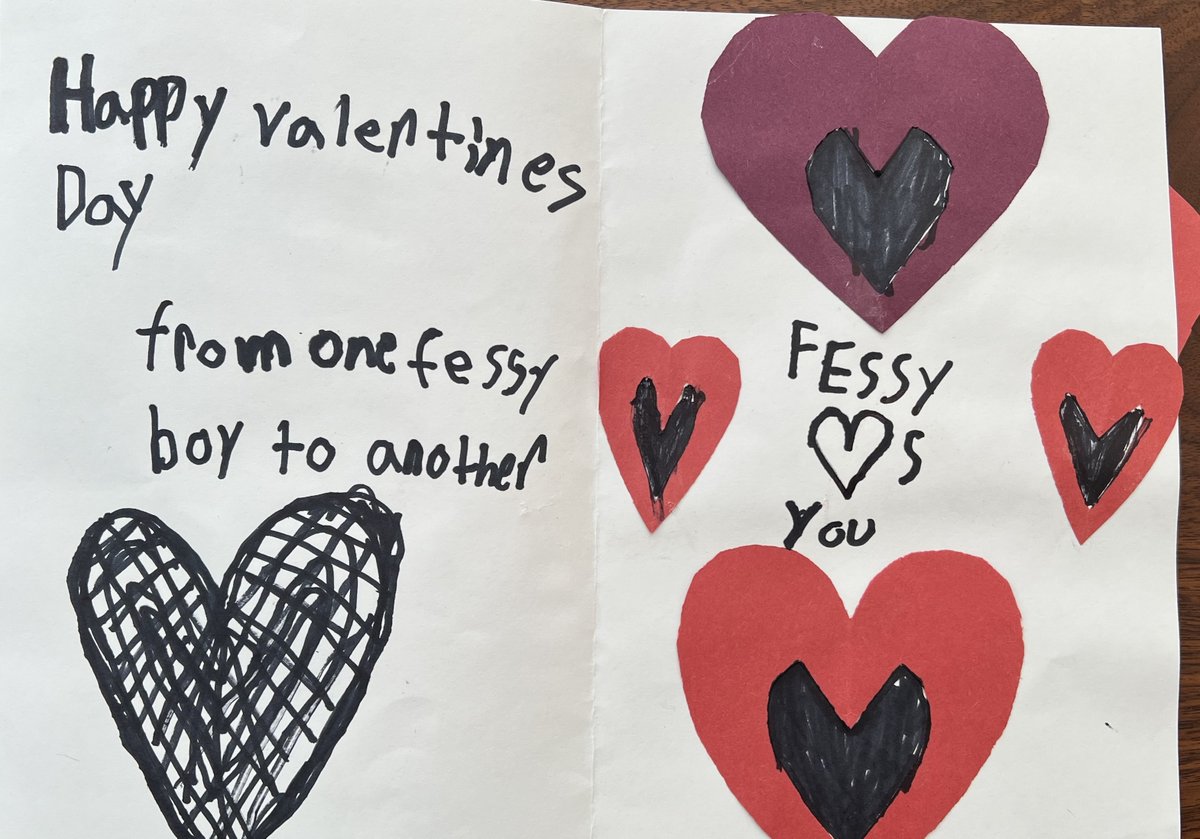 Happy valentines
Day
from one fessy
boy to another
FESSY
♡s
you